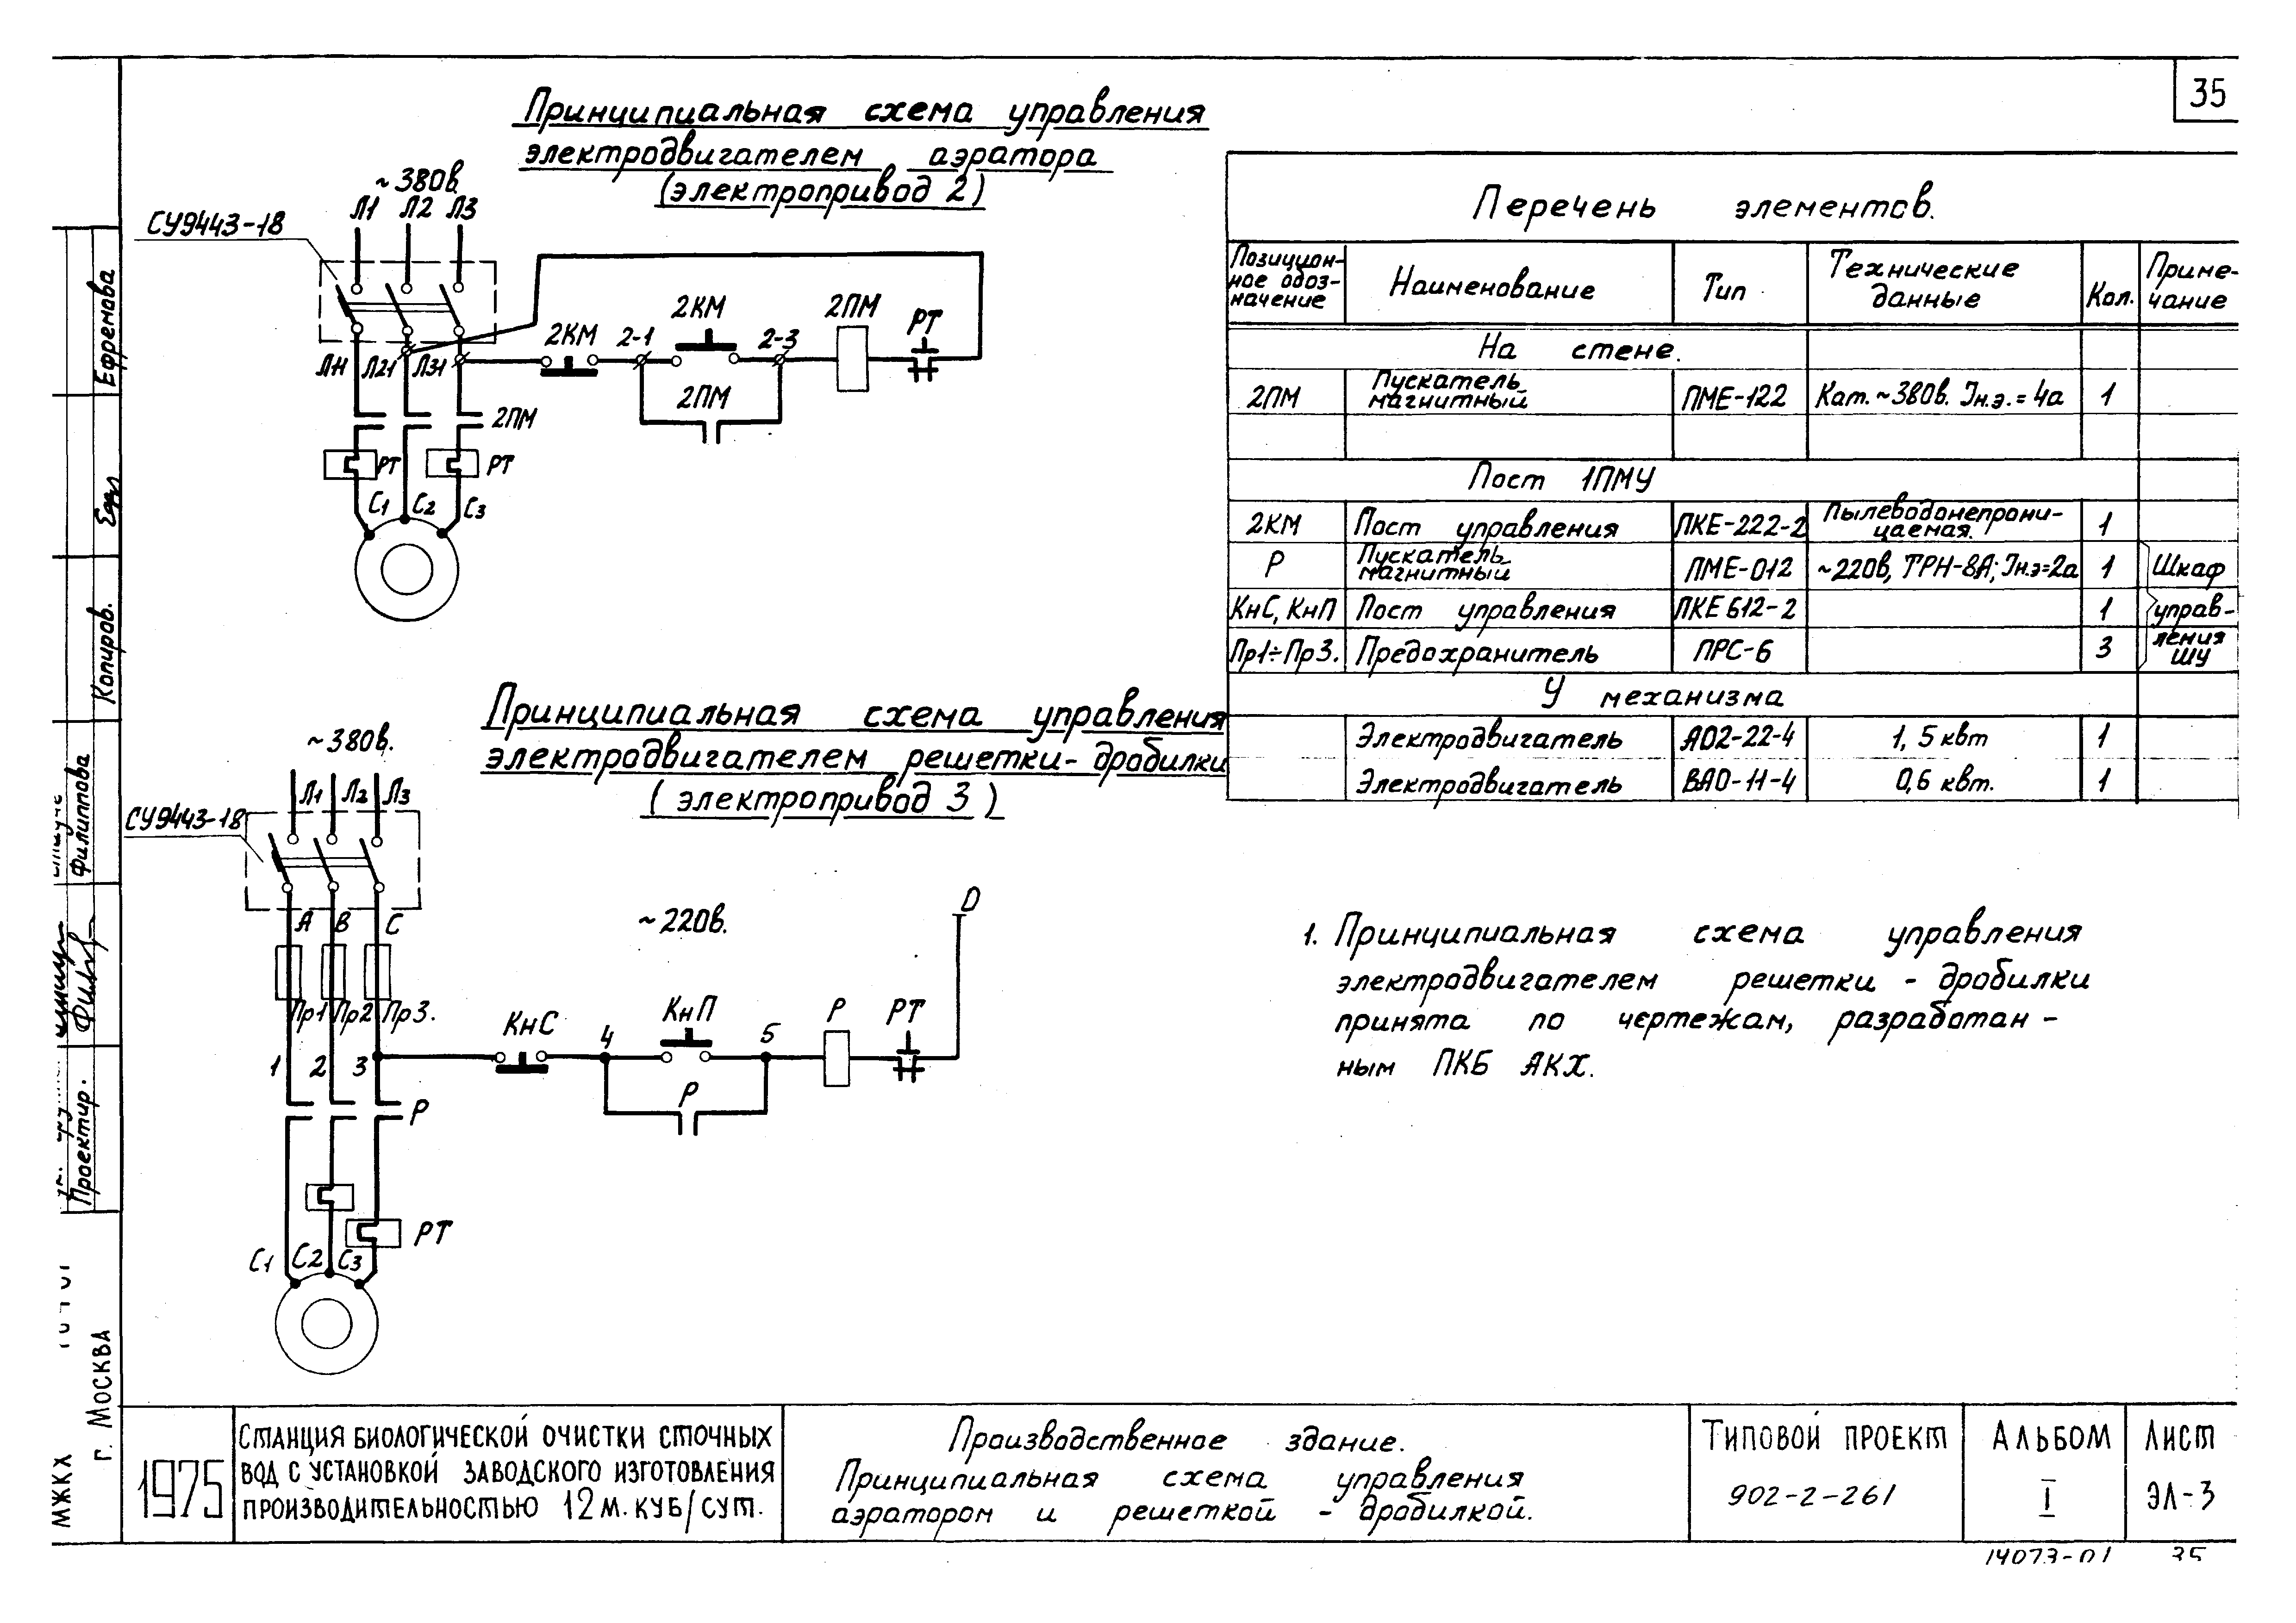 35
Принципиальная схема управления
электродвигателем аэратора
(электропривод 2)
~380в.
Л1 Л2 Л3
СУ9443-18
2КМ 2КМ 2ПМ РТ
2-1 2-3
Л11 Л21 Л31
2ПМ
2ПМ
РТ РТ
С1 С2 С3
Принципиальная схема управления
электродвигателем решетки-дробилки
(электропривод 3)
~380в.
Л1 Л2 Л3
СУ9443-18
А В С
~220в.
О
Пр1 Пр2 Пр3.
КнС КнП Р РТ
1 2 3 4 5
Р
Р
РТ
С1 С2 С3
Перечень элементов.
Позицион-
ное обоз-
начение
Наименование
Тип
Технические
данные
Кол.
Приме-
чание
На стене.
2ПМ Пускатель магнитный ПМЕ-122 Кат.~380в. Iн.э.=4а 1
Пост 1ПМУ
2КМ Пост управления ПКЕ-222-2 Пылеводонепрони-
цаемая. 1
Р Пускатель магнитный ПМЕ-012 ~220в, ТРН-8А; Iн.э=2а 1
КнС, КнП Пост управления ПКЕ 612-2 1
Пр1÷Пр3. Предохранитель ПРС-6 3
Шкаф
управ-
ления
ШУ
У механизма
Электродвигатель АО2-22-4 1,5 квт 1
Электродвигатель ВАО-11-4 0,6 квт. 1
1. Принципиальная схема управления
электродвигателем решетки - дробилки
принята по чертежам, разработан -
ным ПКБ АКХ.
Ефремова
Копиров.
Филиппова
Проектир.
МЖКХ
г. Москва
1975
Станция биологической очистки сточных
вод с установкой заводского изготовления
производительностью 12 м.куб/сут.
Производственное здание.
Принципиальная схема управления
аэратором и решеткой - дробилкой.
Типовой проект
902-2-261
Альбом
I
Лист
ЭЛ-3
14073-01 35